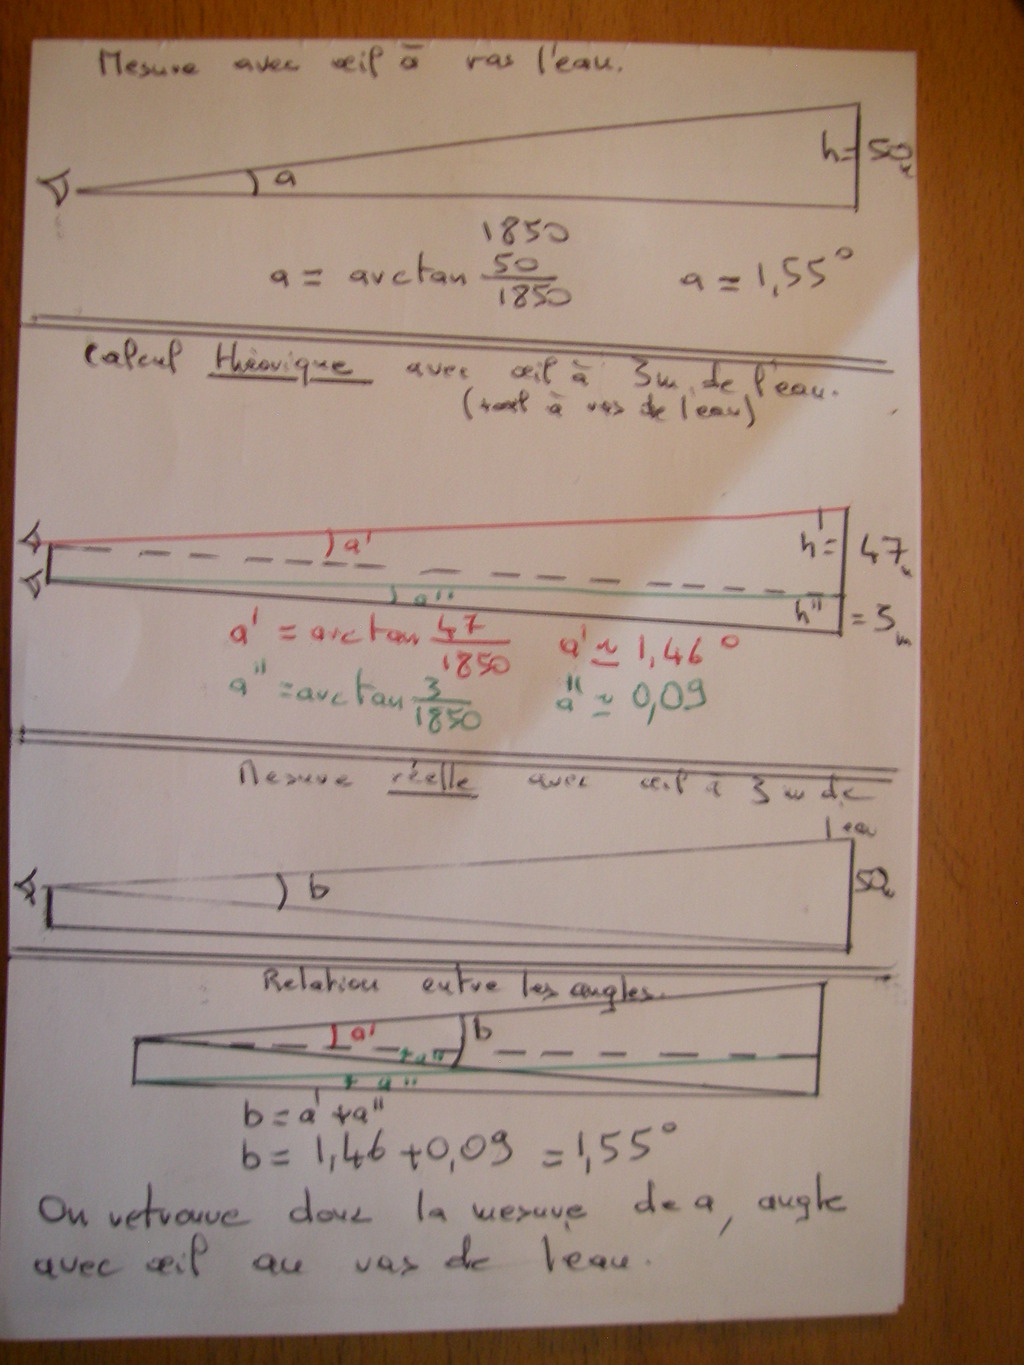 Mesure avec œil à ras l'eau.
a
h= 50m
1850
a = arctan 50/1850 a = 1,55°
Calcul théorique avec œil à 3m de l'eau.
(soit à ras de l'eau)
a'
h'= 47m
a''
h'' = 3m
a' = arctan 47/1850 a' ≃ 1,46°
a'' = arctan 3/1850 a'' ≃ 0,09
Mesure réelle avec œil à 3m de
l'eau
b
50m
Relation entre les angles.
a' b
a''
a''
b = a' + a''
b = 1,46 + 0,09 = 1,55°
On retrouve donc la mesure de a, angle
avec œil au ras de l'eau.